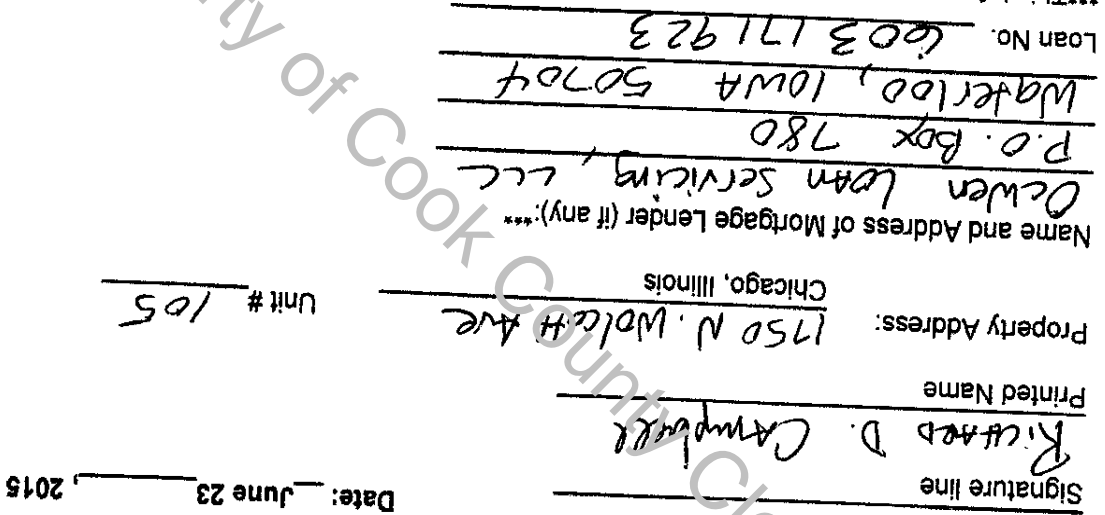 Date: June 23, 2015
Signature line
Richard D. Campbell
Printed Name
Property Address: 1750 N. Wolcott Ave Unit # 105
Chicago, Illinois
Name and Address of Mortgage Lender (if any):***
Ocwen Loan Servicing, LLC
P.O. Box 780
Waterloo, Iowa 50704
Loan No. 603171923
of Cook County